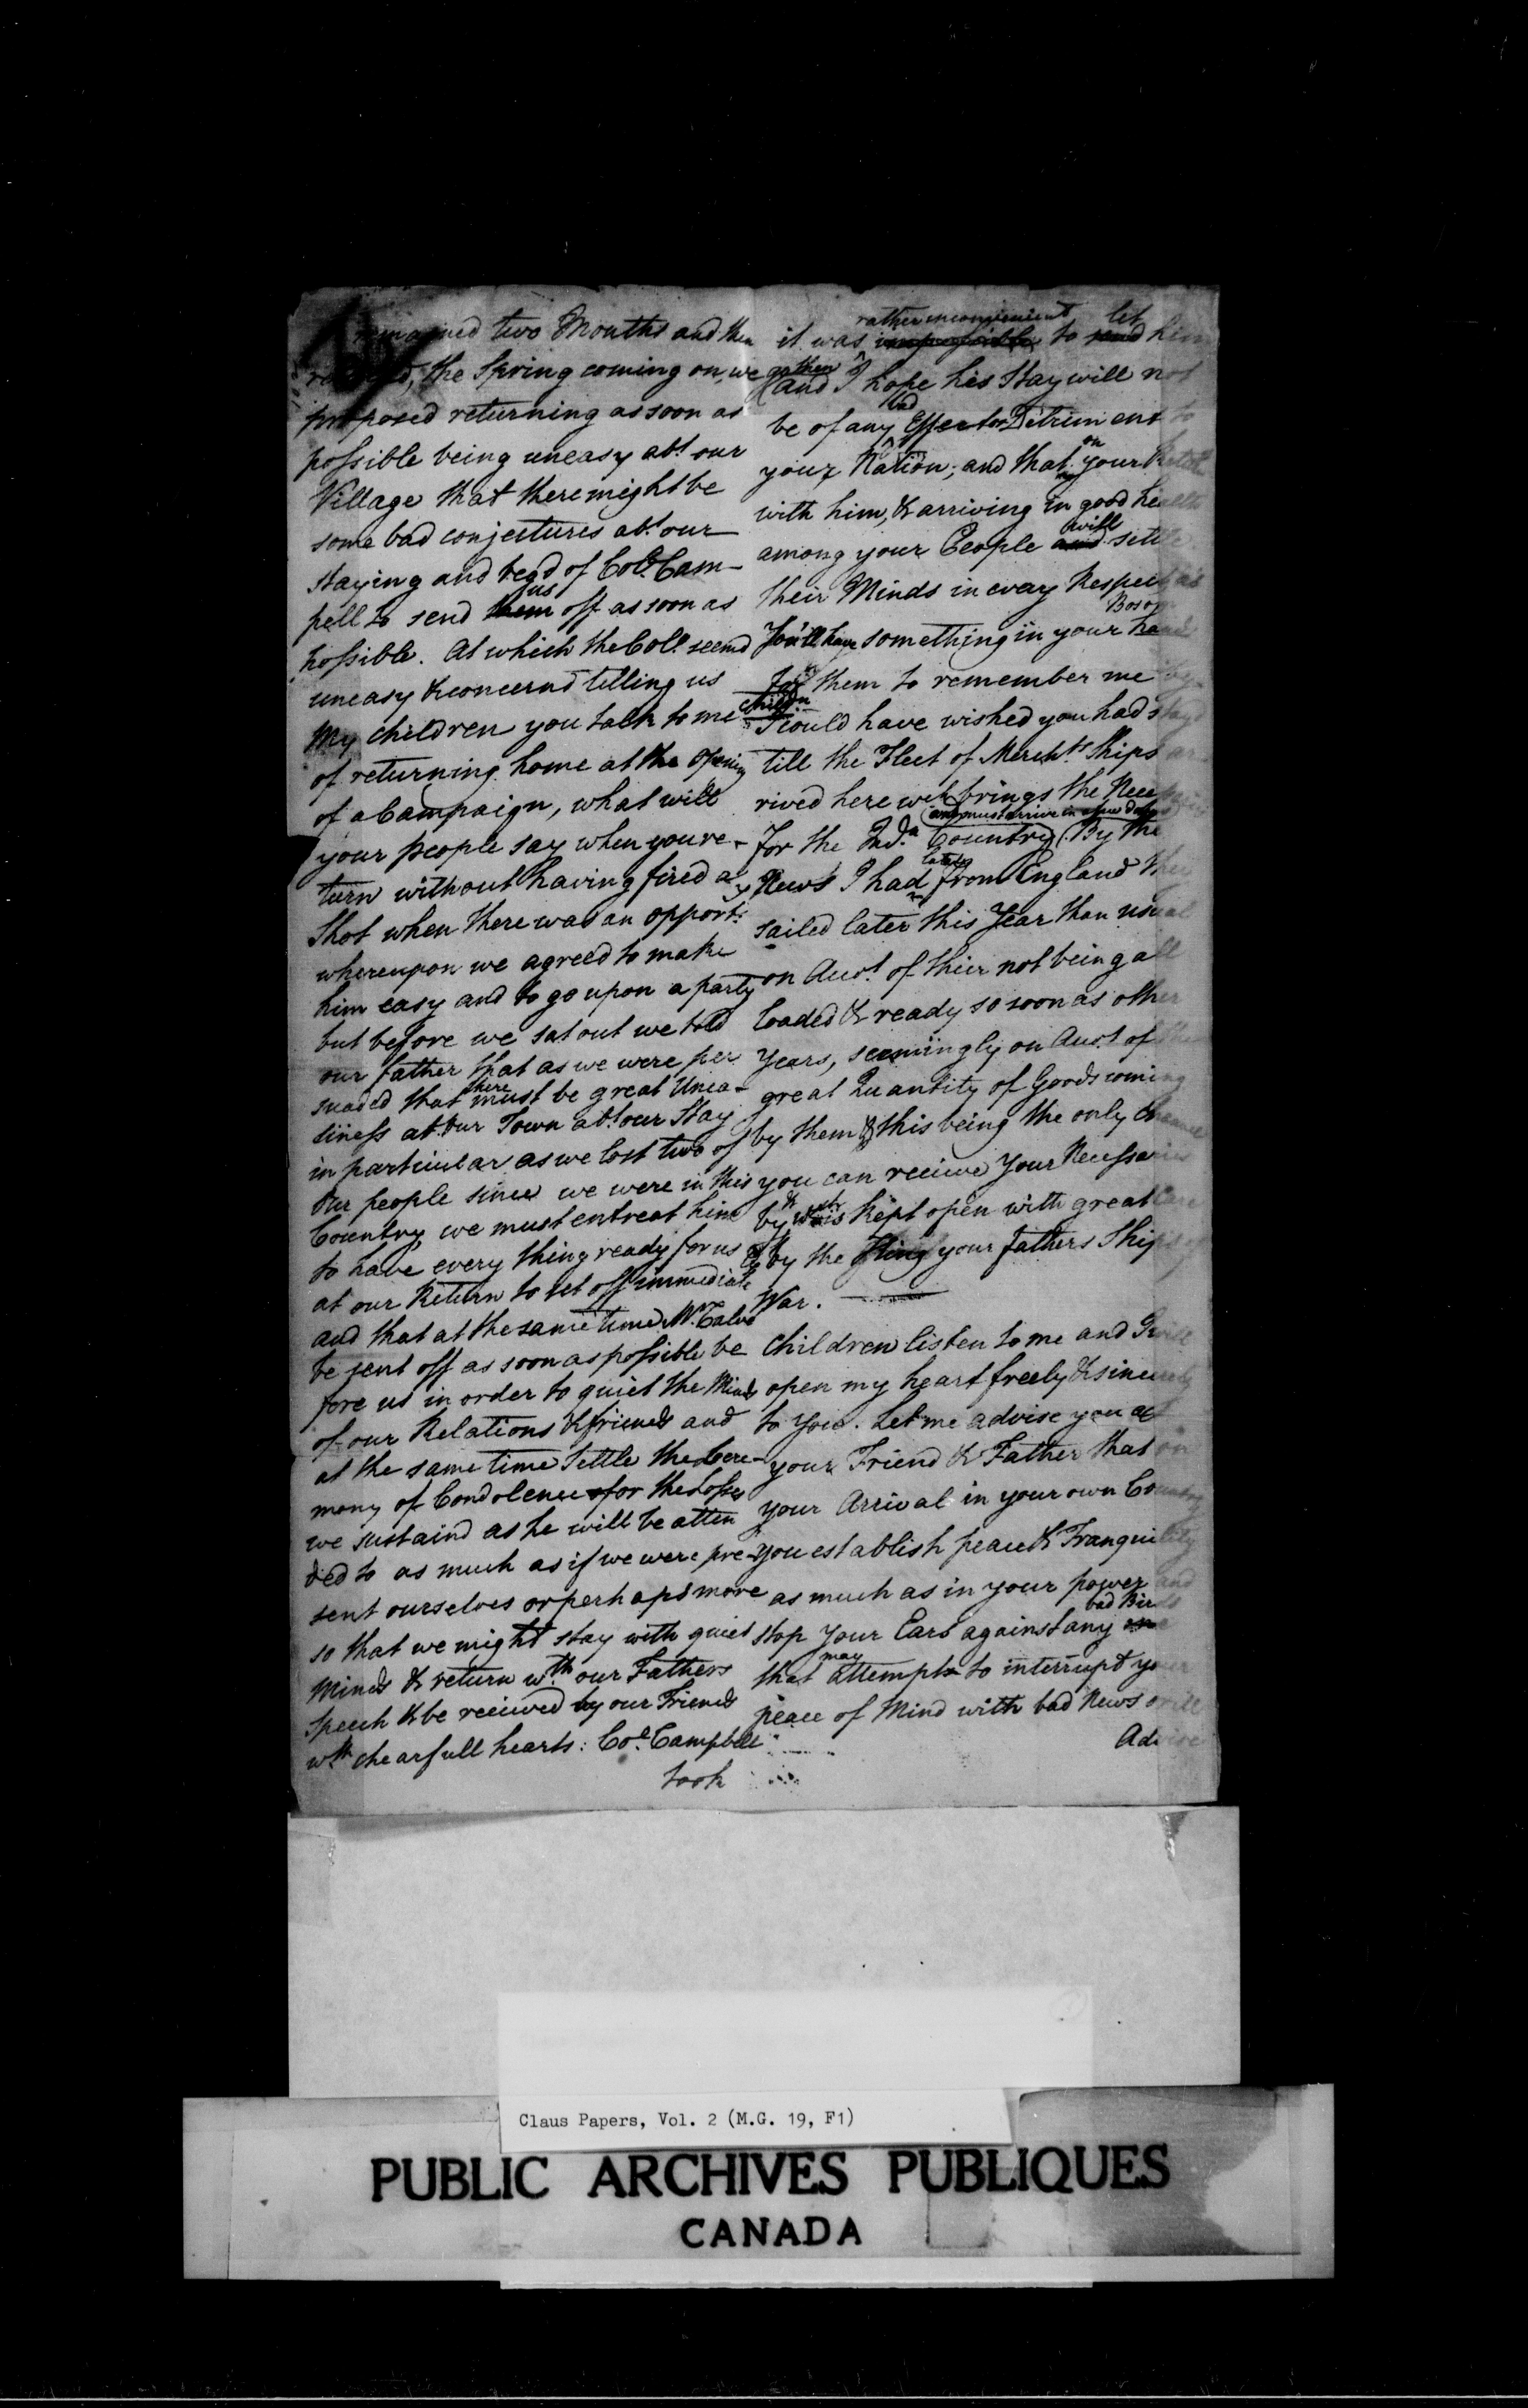 remained two Months and then
the Spring coming on, we
proposed returning as soon as
possible being uneasy abt. our
Village that there might be
some bad conjectures abt. our
staying and begd of Col. Cam-
pell to send them us off as soon as
possible. At which the Coll. seemd
uneasy & concernd telling us
My children you talk to me
of returning home at the opening
of a Campaign, what will
your people say when you re-
turn without having fired a
shot when there was an opport:
whereupon we agreed to make
him easy and to go upon a party
but before we sat out we told
our father that as we were per
suaded that there must be great Unea-
siness at our Town abt. our Stay
in particular as we lost two of
our people since we were in this
Country we must entreat him
to have every thing ready for us
at our Return to set off immediate
and that at the same time Mr.
be sent off as soon as possible be
fore us in order to quiet the Minds
of our Relations & friends and
at the same time Settle the Cere-
mony of Condolence for the Losses
we sustaind as he will be atten
ded to as much as if we were pre-
sent ourselves or perhaps more
so that we might stay with quiet
Minds & return wth. our Fathers
Speech & be received by our Friends
wth chearfull hearts: Col. Campbell
took
rather inconvenient let
it was impossible to send him
go then and I hope his Stay will not
be of any bad Effect or Detriment to
your Nation; and that on your
with him, & arriving in good health
among your People and will settle
their Minds in evary Respect as
Bosom
You'll have something in your hand
for them to remember me by
Childn.
I could have wished you had stayd
till the Fleet of Mercht. Ships ar
rived here wch brings the
(and must arrive in a few days)
for the Inda. Country. By the
News I had lately from England they
sailed later this Year than usual
on Acct. of their not being all
loaded & ready so soon as other
Years, seemingly on Acct. of the
great Quantity of Goods coming
by them & this being the only
you can receive Your Necessaries
by & wch is kept open with great Care
by the King your fathers Ships of
War.
Children listen to me and I will
open my heart freely & sincerely
to You. Let me advise you as
your Friend & Father that on
your Arrival in your own Country
you establish peace & Tranquility
as much as in your power and
stop Your Ears against any bad Birds
that may attempt to interrupt your
peace of Mind with bad News or ill
Advice
Claus Papers, Vol. 2 (M.G. 19, F1)
PUBLIC ARCHIVES PUBLIQUES
CANADA